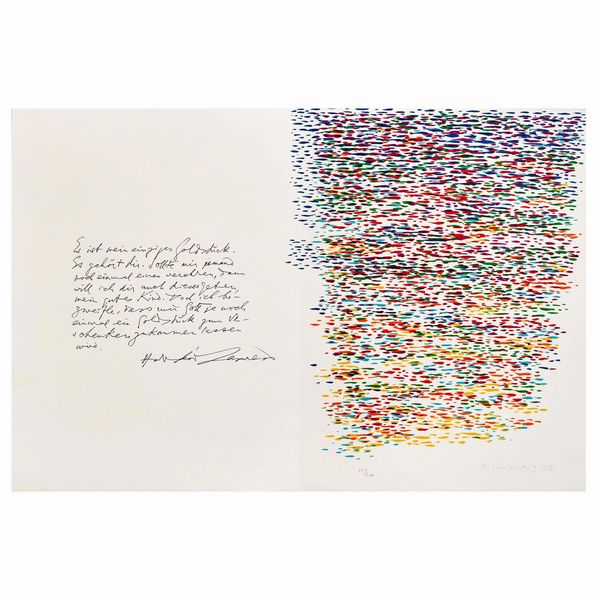 Es ist mein einziges Goldstück.
Es gehört dir. Sollte mir jemand
noch einmal eines verehren, dann
will ich dir auch dieses geben,
mein gutes Kind. Doch ich be-
zweifle, dass mir Gott je noch
einmal ein Goldstück zum Ver-
schenken zukommen lassen
wird.